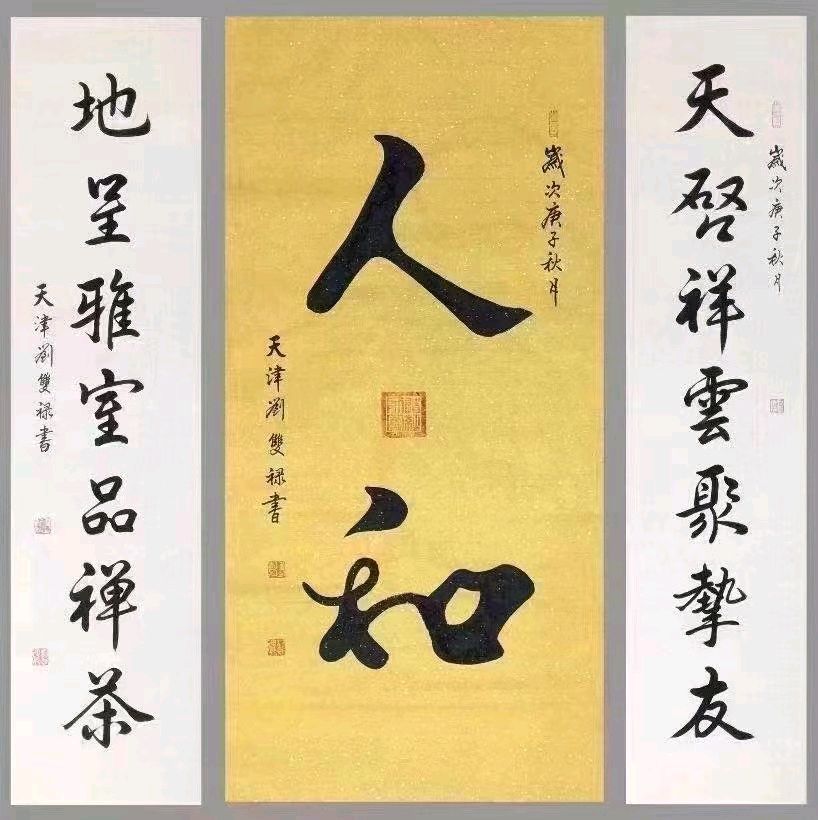 天啓祥雲聚摯友
歲次庚子秋月
人和
歲次庚子秋月
天津劉雙禄書
地呈雅室品禅茶
天津劉雙禄書